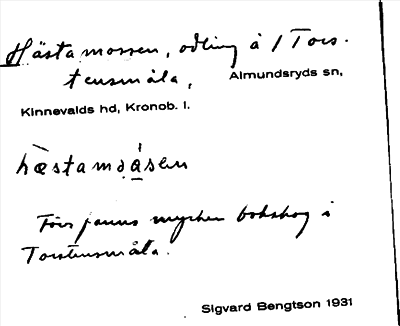 Hästamossen, odling å 1 Tors-
tensmåla,
Almundsryds sn,
Kinnevalds hd, Kronob. l.
Förr fanns mycken bokskog i
Torstensmåla.
Sigvard Bengtson 1931